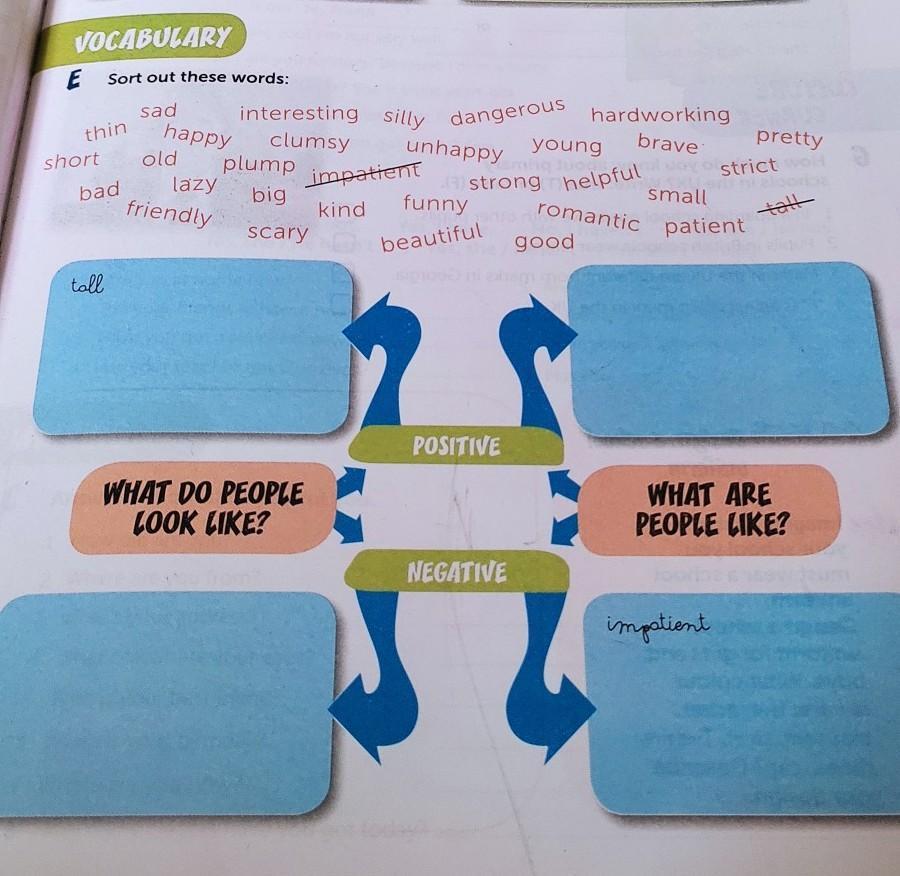 VOCABULARY
E Sort out these words:
sad interesting silly dangerous hardworking
thin happy clumsy unhappy young brave pretty
short old plump impatient strong helpful strict
bad lazy big kind funny small tall
friendly romantic patient
scary beautiful good
tall
POSITIVE
WHAT DO PEOPLE
LOOK LIKE?
WHAT ARE
PEOPLE LIKE?
NEGATIVE
impatient